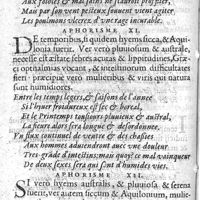 Aux foibles & mal sains ne sçauroit profiter,
Mais par son vent pesteux souvent vient agiter
Les poulmons ulcerez, d'un crachas incurable.
APHORISME XI.
DE temporibus, si quidem hyems sicca, & Aquilonia fuerit. Ver verò pluviosum & australe,
necesse est æstate febres acutas & lippitudines,
optimalias vocant, & intestinorum difficultates
fieri: præcipuè verò mulieribus & viris qui natura
sunt humidiores.
Entre les temps legers, & saisons de l'année
Si l'hyver froidureux est sec & boreal,
Et le Printemps tousjours pluvieux & austral,
La fievre alors sera longue & desordonnée.
Un flux continuel de ventre & des chasses
Aux hommes adviendront avec une douleur
Tres-grade d'intestins; mais quoy? ce mal vainqueur
De deux sexes sera qui sont d'humides vies.
APHORISME XII.
SI verò hyems australis, & pluviosa & serena
fuerit, ver autem siccum & Aquilonium, mulie-